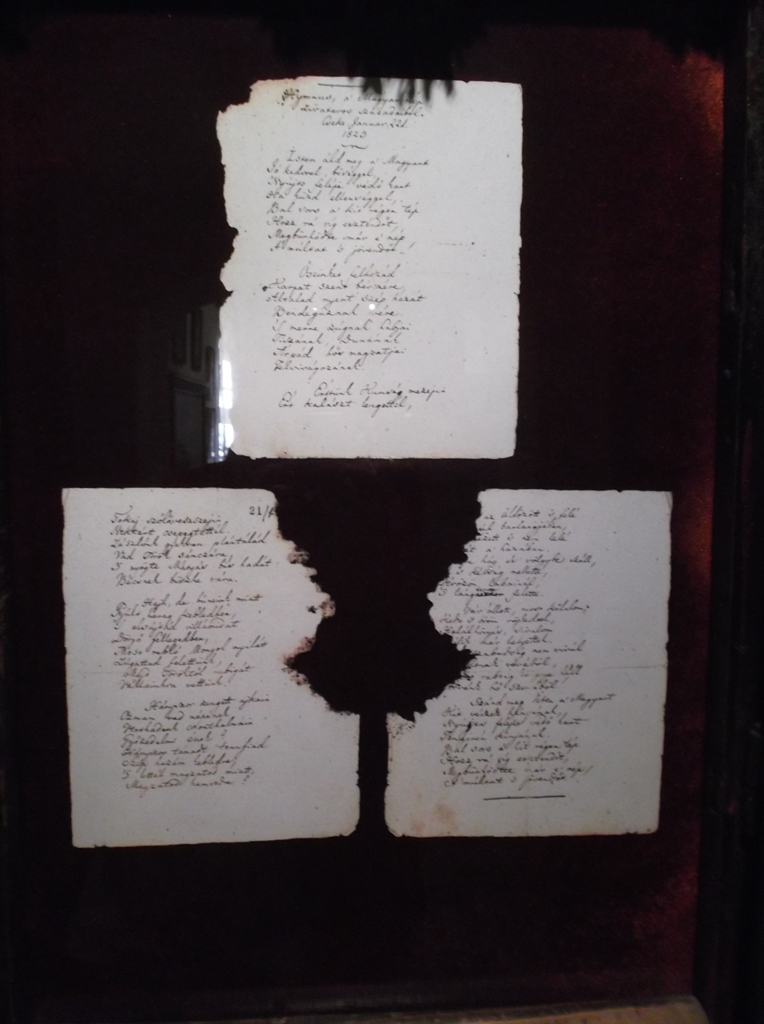 Hymnus, a Magyar nép
zivataros századaiból.
Cseke Januar. 22d.
1823
Isten áldd meg a Magyart
Jó kedvvel, bőséggel,
Nyújts feléje védő kart
Ha küzd ellenséggel,
Bal sors a kit régen tép
Hozz rá víg esztendőt,
Megbűnhődte már e nép
A' múltat 's jövendőt!
Őseinket felhozád
Kárpát szent bérczére,
Általad nyert szép hazát
Bendegúznak vére.
'S merre zúgnak habjai
Tiszának, Dunának
Árpád hős magzatjai
Felvirágozának.
Értünk Kunság mezejin
Érő kalászt lengettél,
21/
Tokaj szőlővesszejin
Nektárt csepegtettél.
Zászlónk gyakran plántálád
Vad Török sánczára,
'S nyögte Mátyás bús hadát
Bécsnek büszke vára.
Hajh, de bűneink miatt
Gyúlt harag kebledben,
'S elsújtád villámidat
Dörgő fellegedben,
Most rabló Mongol nyilát
Zúgattad felettünk,
Majd Töröktől rabigát
Vállainkra vettünk.
Hányszor zengett ajkain
Ozman vad népének
Vert hadunk csonthalmain
Győzedelmi ének!
Hányszor támadt tenfiad
Szép hazám kebledre,
'S lettél magzatod miatt,
Magzatod hamvvedre?
az üldözött 's felé
barlangjában,
's nem lelé
a hazában.
és völgybe száll,
'S kétség mellette,
Vérözön lábainál,
'S lángtenger felette.
Vár állott, most kőhalom;
Kedv 's öröm röpkedtek,
Halálhörgés, siralom
már helyettek.
szabadság nem virúl
véréből,
rabság könnye hull
hő szeméből.
Szánd meg Isten a Magyart
Kit vészek hányának,
Nyújts feléje védő kart
Tengerén kínjának.
Bal sors a kit régen tép
Hozz rá víg esztendőt,
Megbűnhődte már e nép
A' múltat 's jövendőt!